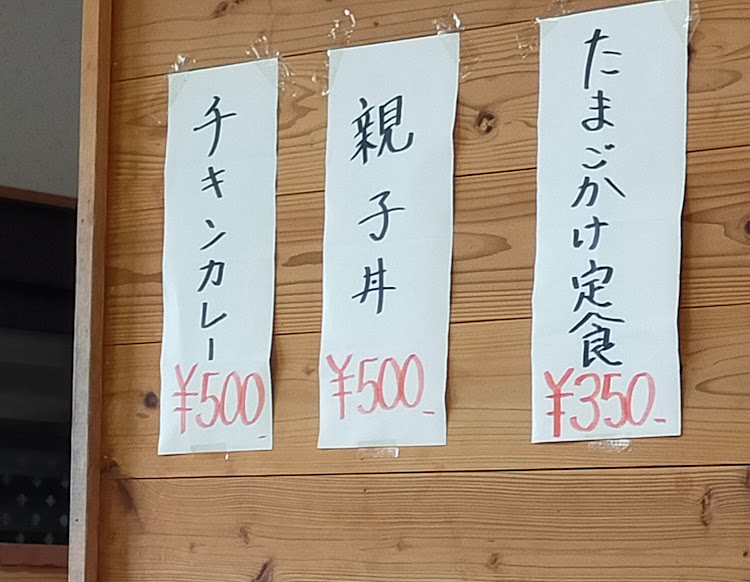 たまごかけ定食
¥350-
親子丼
¥500-
チキンカレー
¥500-